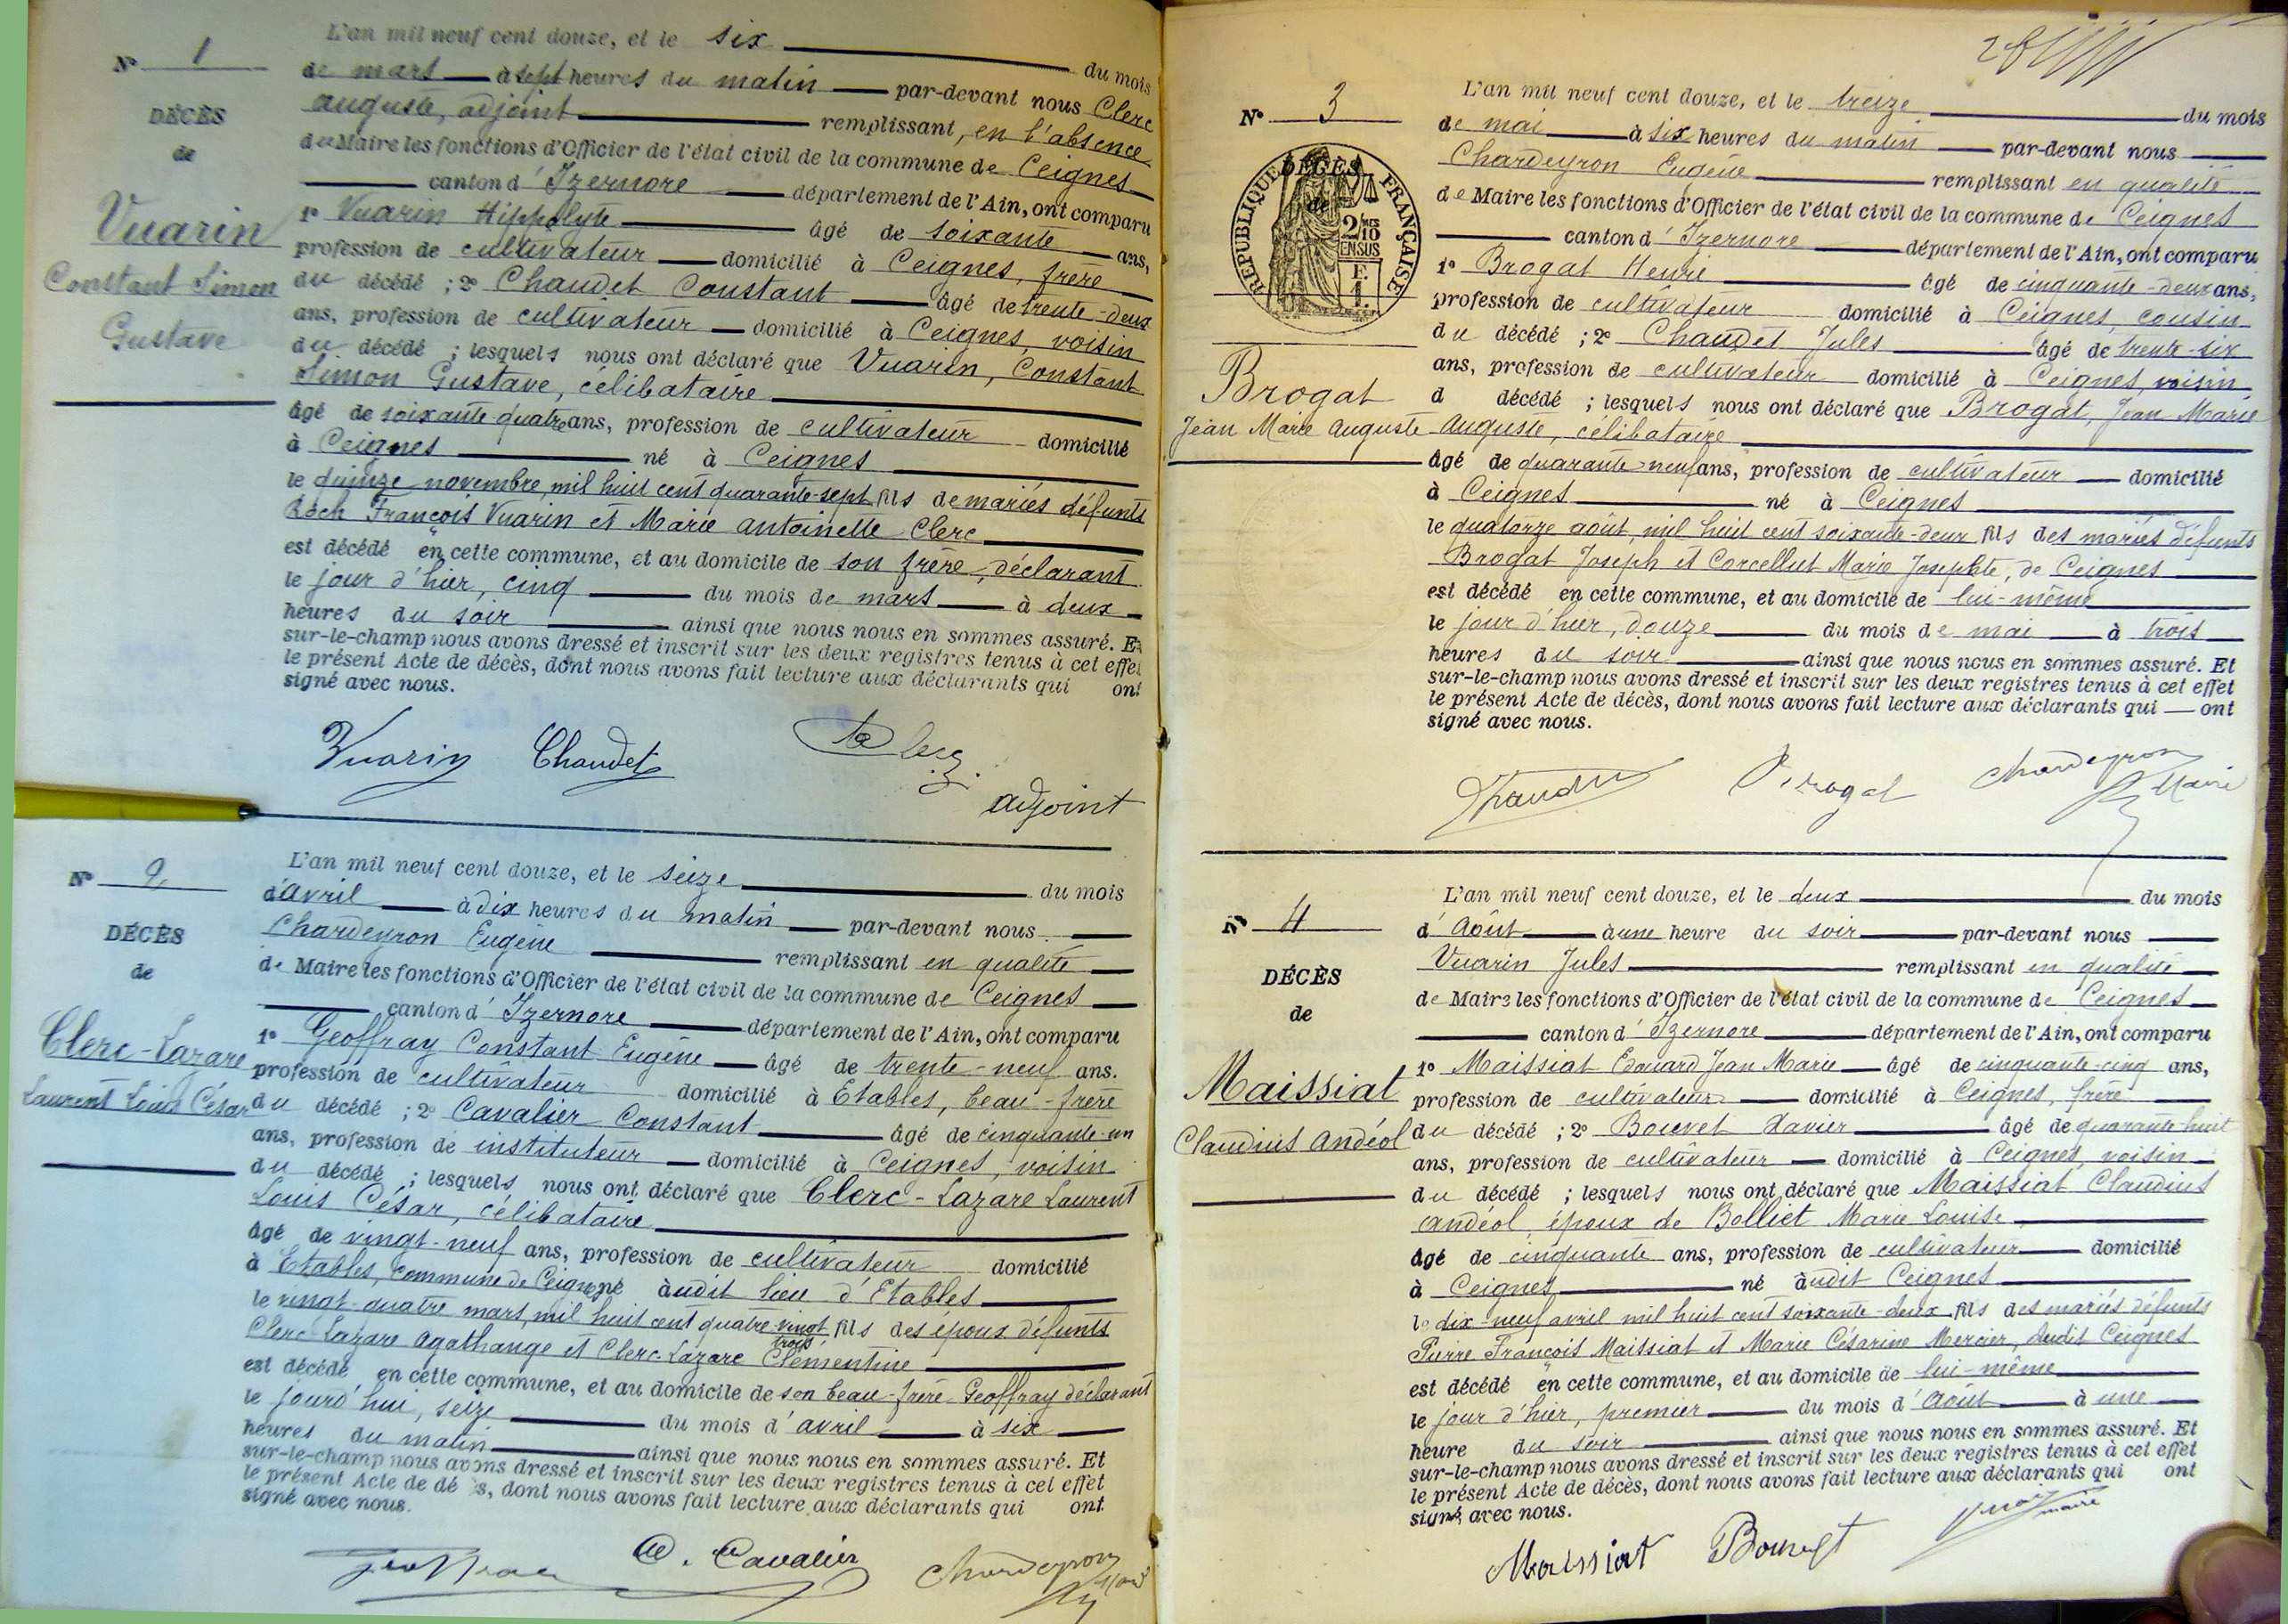 N° 1
DÉCÈS
de
Vuarin
Constant Simon
Gustave
L'an mil neuf cent douze, et le six du mois
de mars à sept heures du matin par-devant nous Clerc
auguste, adjoint remplissant, en l'absence
du Maire les fonctions d'Officier de l'état civil de la commune de Ceignes
canton d'Izernore département de l'Ain, ont comparu
1° Vuarin Hippolyte âgé de soixante ans,
profession de cultivateur domicilié à Ceignes, frère
du décédé ; 2° Chaudet Constant âgé de trente-deux
ans, profession de cultivateur domicilié à Ceignes, voisin
du décédé ; lesquels nous ont déclaré que Vuarin, Constant
Simon Gustave, célibataire
âgé de soixante-quatre ans, profession de cultivateur domicilié
à Ceignes né à Ceignes
le quinze novembre, mil huit cent quarante-sept fils de mariés défunts
Roch François Vuarin et Marie antoinette Clerc
est décédé en cette commune, et au domicile de son frère, déclarant
le jour d'hier, cinq du mois de mars à deux
heures du soir ainsi que nous nous en sommes assuré. Et
sur-le-champ nous avons dressé et inscrit sur les deux registres tenus à cet effet
le présent Acte de décès, dont nous avons fait lecture aux déclarants qui ont
signé avec nous.
Vuarin Chaudet Clerc
adjoint
N° 2
DÉCÈS
de
Clerc-Lazare
Laurent Louis César
L'an mil neuf cent douze, et le seize du mois
d'avril à dix heures du matin par-devant nous
Chardeyron Eugène remplissant en qualité
de Maire les fonctions d'Officier de l'état civil de la commune de Ceignes
canton d'Izernore département de l'Ain, ont comparu
1° Geoffray Constant Eugène âgé de trente-neuf ans.
profession de cultivateur domicilié à Etables, beau-frère
du décédé ; 2° Cavalier Constant âgé de cinquante-un
ans, profession de instituteur domicilié à Ceignes, voisin
du décédé ; lesquels nous ont déclaré que Clerc-Lazare Laurent
Louis César, célibataire
âgé de vingt-neuf ans, profession de cultivateur domicilié
à Etables, commune de Ceignes né audit lieu d'Etables
le vingt-quatre mars, mil huit cent quatre-vingt fils des époux défunts
trois
Clerc-Lazare Agathange et Clerc-Lazare Clémentine
est décédé en cette commune, et au domicile de son beau-frère Geoffray déclarant
le jourd'hui, seize du mois d'avril à six
heures du matin ainsi que nous nous en sommes assuré. Et
sur-le-champ nous avons dressé et inscrit sur les deux registres tenus à cet effet
le présent Acte de décès, dont nous avons fait lecture aux déclarants qui ont
signé avec nous.
Geoffray C. Cavalier Chardeyron
N° 3
DÉCÈS
de
RÉPUBLIQUE FRANÇAISE
2/10
EN SUS
F.
1.
Brogat
Jean Marie Auguste
L'an mil neuf cent douze, et le treize du mois
de mai à six heures du matin par-devant nous
Chardeyron Eugène remplissant en qualité
de Maire les fonctions d'Officier de l'état civil de la commune de Ceignes
canton d'Izernore département de l'Ain, ont comparu
1° Brogat Henri âgé de cinquante-deux ans,
profession de cultivateur domicilié à Ceignes, cousin
du décédé ; 2° Chaudet Jules âgé de trente-six
ans, profession de cultivateur domicilié à Ceignes, voisin
d décédé ; lesquels nous ont déclaré que Brogat, Jean Marie
Auguste, célibataire
âgé de quarante-neuf ans, profession de cultivateur domicilié
à Ceignes né à Ceignes
le quatorze août, mil huit cent soixante-deux fils des mariés défunts
Brogat Joseph et Corcellut Marie Josephte, de Ceignes
est décédé en cette commune, et au domicile de lui-même
le jour d'hier, douze du mois de mai à trois
heures du soir ainsi que nous nous en sommes assuré. Et
sur-le-champ nous avons dressé et inscrit sur les deux registres tenus à cet effet
le présent Acte de décès, dont nous avons fait lecture aux déclarants qui ont
signé avec nous.
Chaudet Brogat Chardeyron
Maire
N° 4
DÉCÈS
de
Maissiat
Claudius Andéol
L'an mil neuf cent douze, et le deux du mois
d'Août à une heure du soir par-devant nous
Vuarin Jules remplissant en qualité
de Maire les fonctions d'Officier de l'état civil de la commune de Ceignes
canton d'Izernore département de l'Ain, ont comparu
1° Maissiat Edouard Jean Marie âgé de cinquante-cinq ans,
profession de cultivateur domicilié à Ceignes, frère
du décédé ; 2° Bouvet Xavier âgé de quarante-huit
ans, profession de cultivateur domicilié à Ceignes, voisin
du décédé ; lesquels nous ont déclaré que Maissiat Claudius
Andéol, époux de Bolliet Marie Louise
âgé de cinquante ans, profession de cultivateur domicilié
à Ceignes né audit Ceignes
le dix-neuf avril mil huit cent soixante-deux fils des mariés défunts
Pierre François Maissiat et Marie Césarine Mercier, dudit Ceignes
est décédé en cette commune, et au domicile de lui-même
le jour d'hier, premier du mois d'Août à une
heure du soir ainsi que nous nous en sommes assuré. Et
sur-le-champ nous avons dressé et inscrit sur les deux registres tenus à cet effet
le présent Acte de décès, dont nous avons fait lecture aux déclarants qui ont
signé avec nous.
Maissiat Bouvet Vuarin
maire